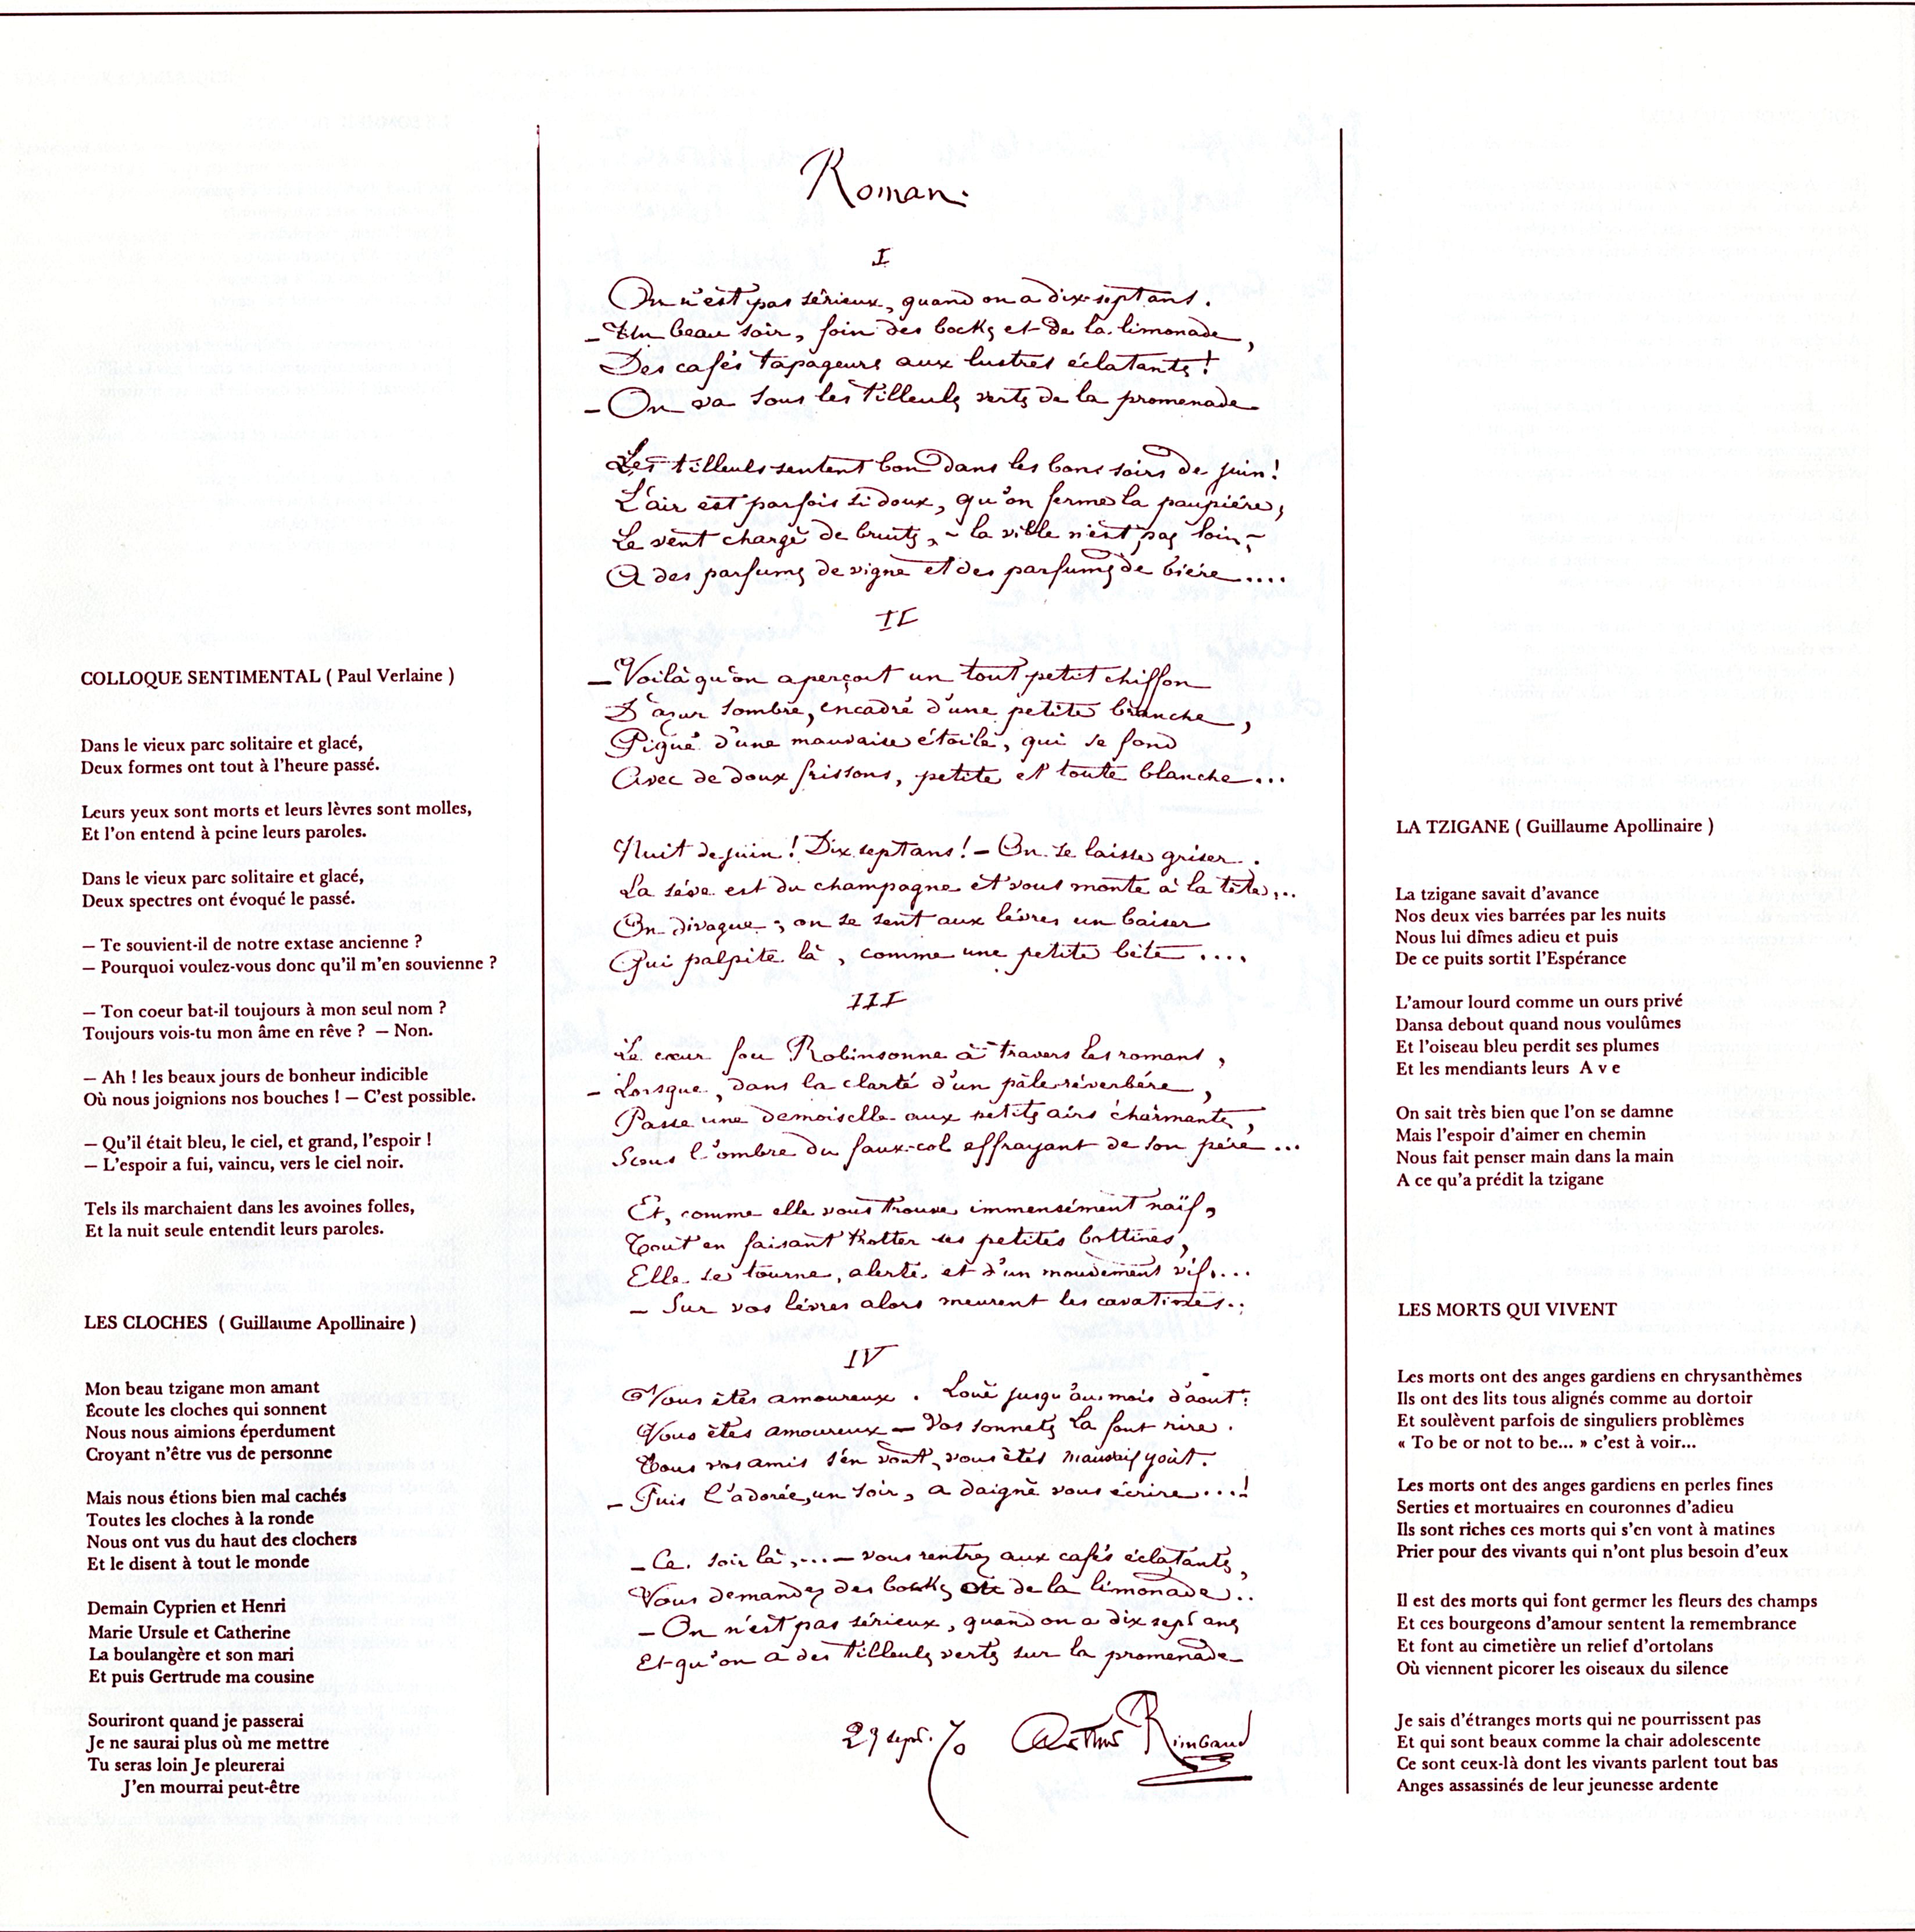 COLLOQUE SENTIMENTAL ( Paul Verlaine )
Dans le vieux parc solitaire et glacé,
Deux formes ont tout à l'heure passé.
Leurs yeux sont morts et leurs lèvres sont molles,
Et l'on entend à peine leurs paroles.
Dans le vieux parc solitaire et glacé,
Deux spectres ont évoqué le passé.
— Te souvient-il de notre extase ancienne ?
— Pourquoi voulez-vous donc qu'il m'en souvienne ?
— Ton coeur bat-il toujours à mon seul nom ?
Toujours vois-tu mon âme en rêve ? — Non.
— Ah ! les beaux jours de bonheur indicible
Où nous joignions nos bouches ! — C'est possible.
— Qu'il était bleu, le ciel, et grand, l'espoir !
— L'espoir a fui, vaincu, vers le ciel noir.
Tels ils marchaient dans les avoines folles,
Et la nuit seule entendit leurs paroles.
LES CLOCHES ( Guillaume Apollinaire )
Mon beau tzigane mon amant
Écoute les cloches qui sonnent
Nous nous aimions éperdument
Croyant n'être vus de personne
Mais nous étions bien mal cachés
Toutes les cloches à la ronde
Nous ont vus du haut des clochers
Et le disent à tout le monde
Demain Cyprien et Henri
Marie Ursule et Catherine
La boulangère et son mari
Et puis Gertrude ma cousine
Souriront quand je passerai
Je ne saurai plus où me mettre
Tu seras loin Je pleurerai
J'en mourrai peut-être
Roman.
I
On n'est pas sérieux, quand on a dix-sept ans.
— Un beau soir, foin des bocks et de la limonade,
Des cafés tapageurs aux lustres éclatants !
— On va sous les tilleuls verts de la promenade
Les tilleuls sentent bon dans les bons soirs de juin !
L'air est parfois si doux, qu'on ferme la paupière,
Le vent chargé de bruits, — la ville n'est pas loin, —
A des parfums de vigne et des parfums de bière ....
II
— Voilà qu'on aperçoit un tout petit chiffon
D'azur sombre, encadré d'une petite branche,
Piqué d'une mauvaise étoile, qui se fond
Avec de doux frissons, petite et toute blanche...
Nuit de juin ! Dix-sept ans ! — On se laisse griser..
La sève est du champagne et vous monte à la tête...
On divague ; on se sent aux lèvres un baiser
Qui palpite là, comme une petite bête ....
III
Le cœur fou Robinsonne à travers les romans,
— Lorsque, dans la clarté d'un pâle réverbère,
Passe une demoiselle aux petits airs charmants,
Sous l'ombre du faux-col effrayant de son père ...
Et, comme elle vous trouve immensément naïf,
Tout en faisant trotter ses petites bottines,
Elle se tourne, alerte et d'un mouvement vif....
— Sur vos lèvres alors meurent les cavatines..
IV
Vous êtes amoureux. Loué jusqu'au mois d'août !
Vous êtes amoureux — Vos sonnets La font rire.
Tous vos amis s'en vont, vous êtes mauvais goût.
— Puis l'adorée, un soir, a daigné vous écrire ...!
— Ce soir là, ... — vous rentrez aux cafés éclatants,
Vous demandez des bocks ou de la limonade..
— On n'est pas sérieux, quand on a dix sept ans
Et qu'on a des tilleuls verts sur la promenade
29 sept. 70 Arthur Rimbaud
LA TZIGANE ( Guillaume Apollinaire )
La tzigane savait d'avance
Nos deux vies barrées par les nuits
Nous lui dîmes adieu et puis
De ce puits sortit l'Espérance
L'amour lourd comme un ours privé
Dansa debout quand nous voulûmes
Et l'oiseau bleu perdit ses plumes
Et les mendiants leurs A v e
On sait très bien que l'on se damne
Mais l'espoir d'aimer en chemin
Nous fait penser main dans la main
A ce qu'a prédit la tzigane
LES MORTS QUI VIVENT
Les morts ont des anges gardiens en chrysanthèmes
Ils ont des lits tous alignés comme au dortoir
Et soulèvent parfois de singuliers problèmes
« To be or not to be... » c'est à voir...
Les morts ont des anges gardiens en perles fines
Serties et mortuaires en couronnes d'adieu
Ils sont riches ces morts qui s'en vont à matines
Prier pour des vivants qui n'ont plus besoin d'eux
Il est des morts qui font germer les fleurs des champs
Et ces bourgeons d'amour sentent la remembrance
Et font au cimetière un relief d'ortolans
Où viennent picorer les oiseaux du silence
Je sais d'étranges morts qui ne pourrissent pas
Et qui sont beaux comme la chair adolescente
Ce sont ceux-là dont les vivants parlent tout bas
Anges assassinés de leur jeunesse ardente